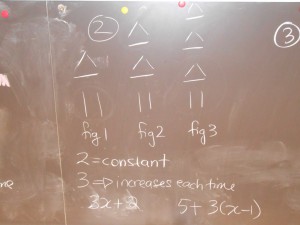 ② ③
fig1 fig2 fig3
2 = constant
3 => increases each time
3x+2 5+ 3(x-1)